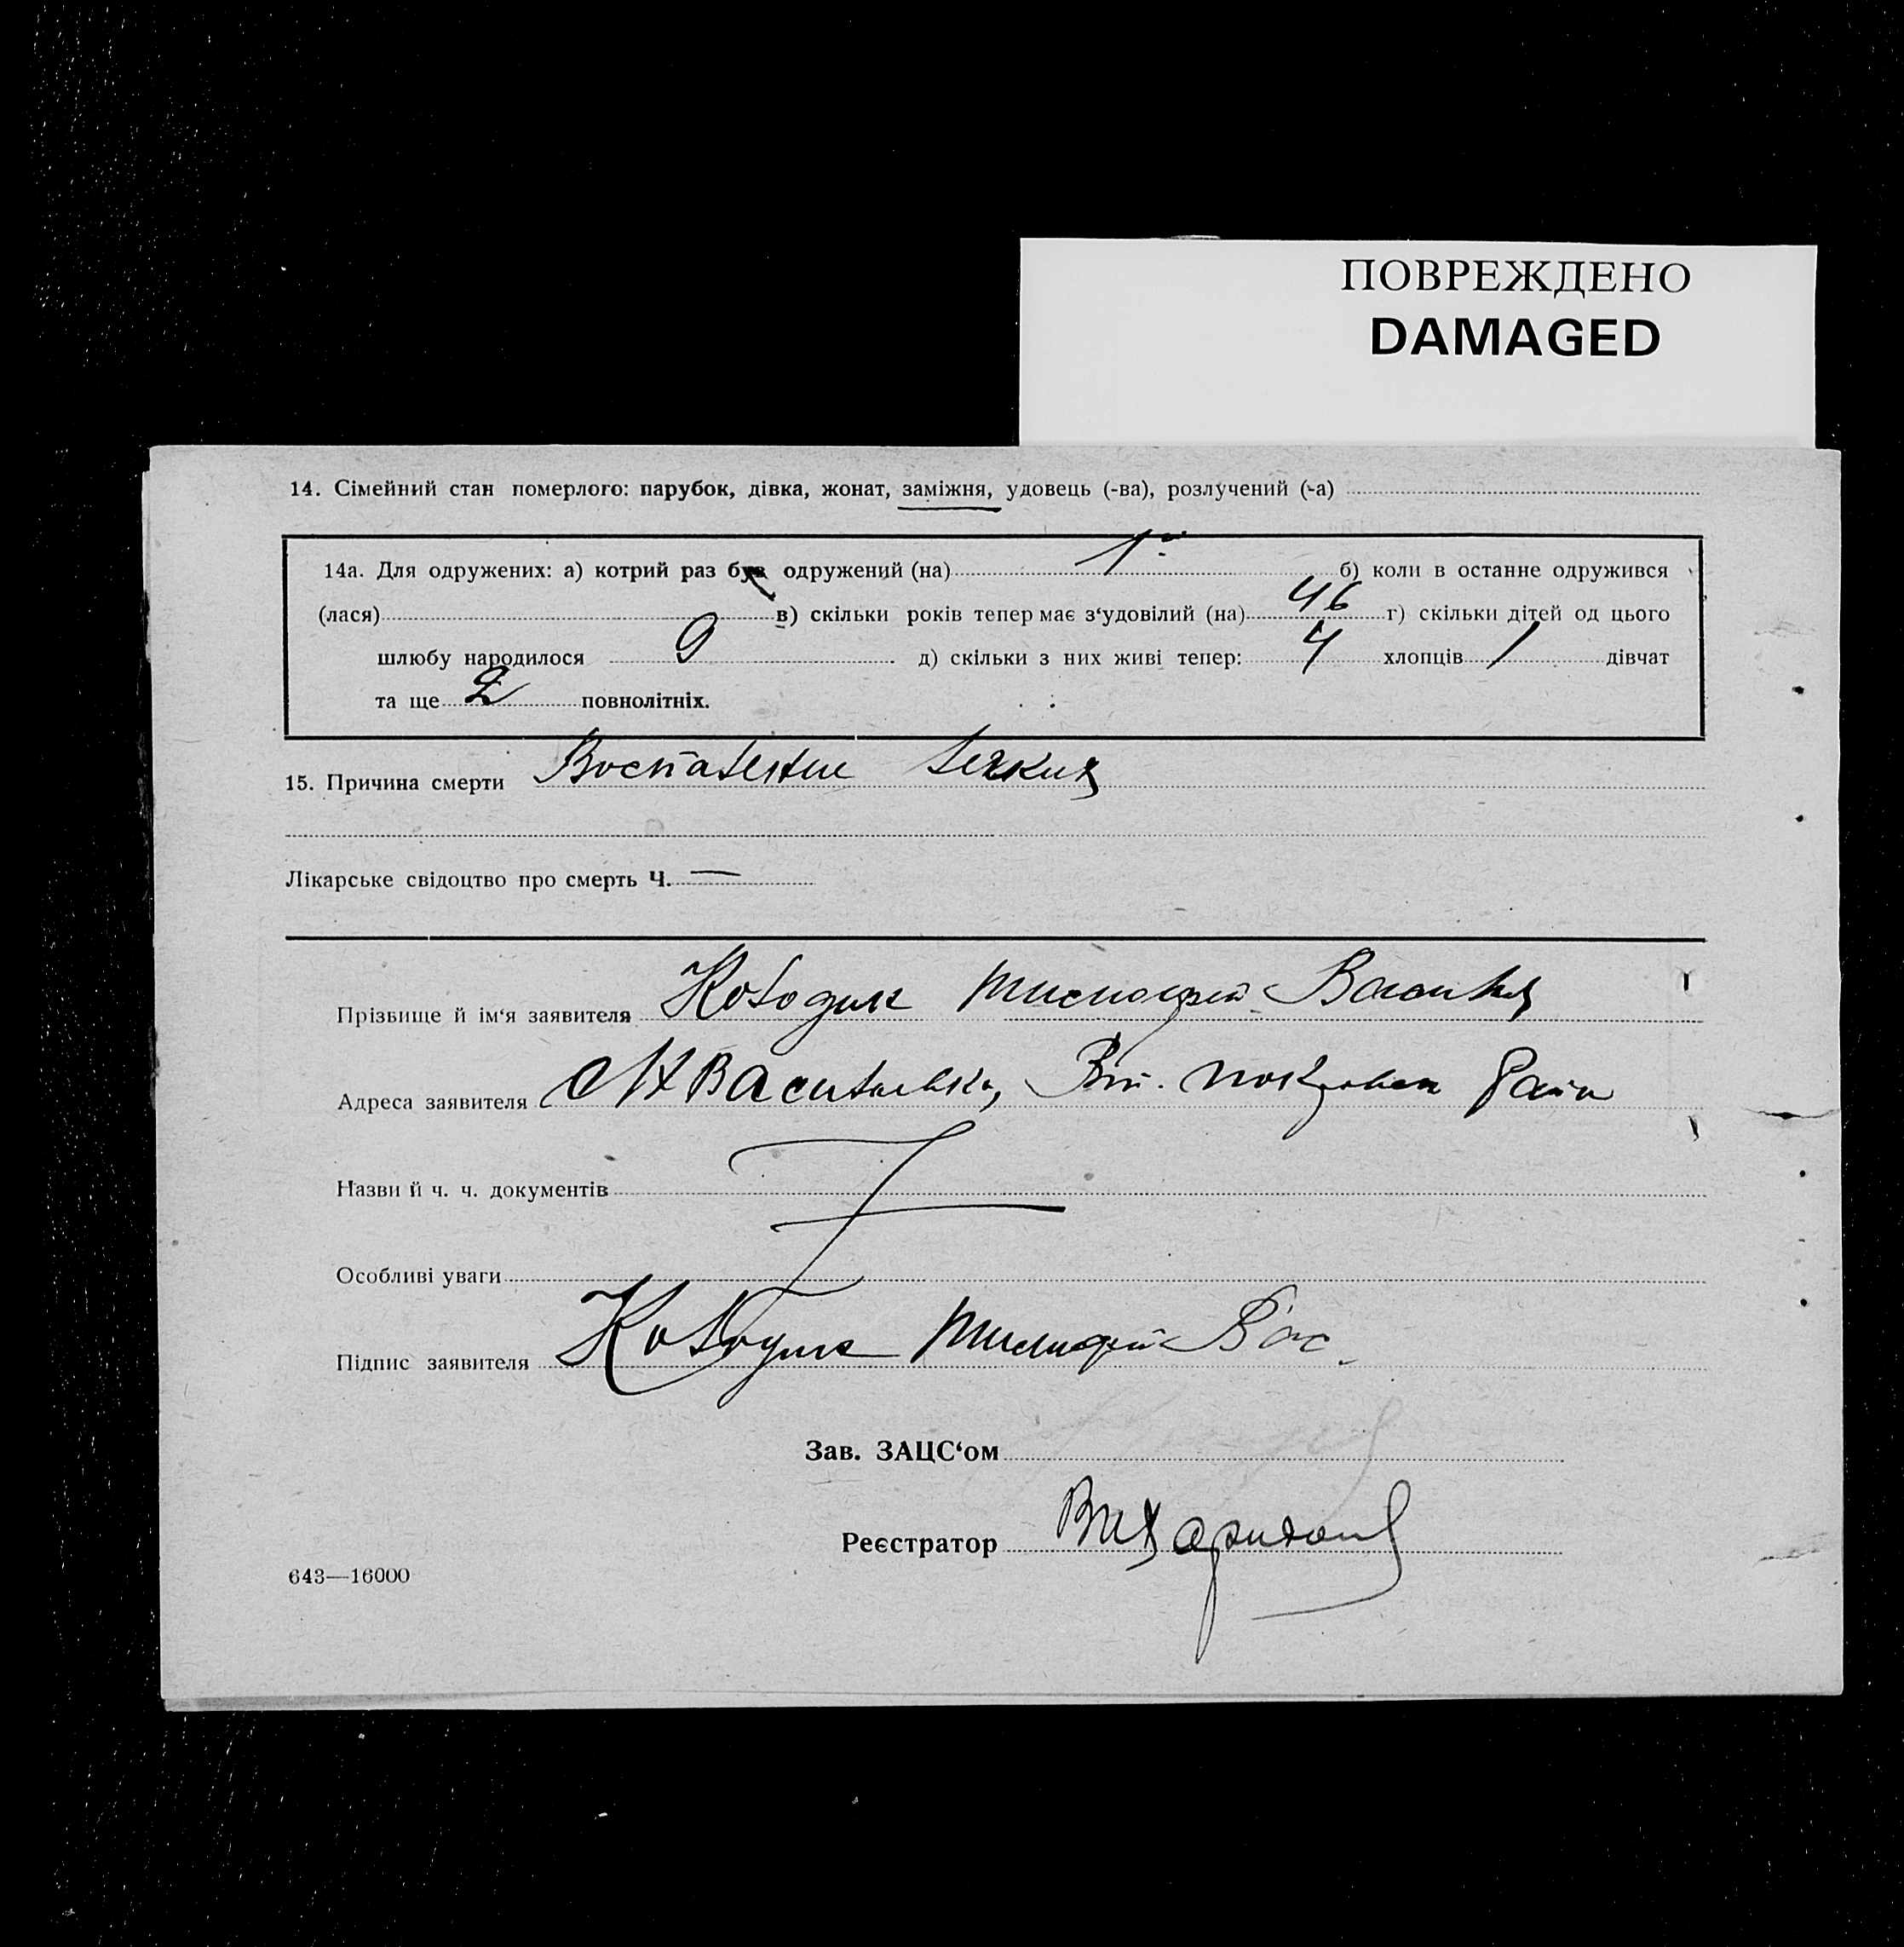 ПОВРЕЖДЕНО
DAMAGED
14. Сімейний стан померлого: парубок, дівка, жонат, заміжня, удовець (-ва), розлучений (-а)
14а. Для одружених: а) котрий раз був одружений (на) 1й б) коли в останне одружився
(лася) в) скільки років тепер має з‘удовілий (на) 46 г) скільки дітей од цього
шлюбу народилося 9 д) скільки з них живі тепер: 4 хлопців 1 дівчат
та ще 2 повнолітніх.
15. Причина смерти Воспаление легких
Лікарське свідоцтво про смерть Ч. —
Прізвище й ім‘я заявителя Колодик Тимофей
Адреса заявителя Васильевка, покровск района
Назви й ч. ч. документів
Особливі уваги
Підпис заявителя Колодик Тимофей Вас.
Зав. ЗАЦС‘ом
Реєстратор
643—16000